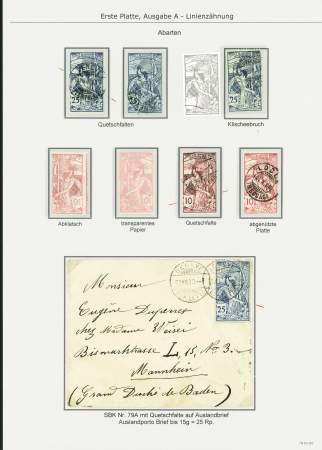 Erste Platte, Ausgabe A - Linienzähnung
Abarten
25 25 25
Quetschfalten Klischeebruch
10 10 10
Abklatsch transparentes Papier Quetschfalte abgenützte Platte
Monsieur
Eugène
chez Madame Weiser
Bismarckstrasse L, 15, No 3.
Mannheim
(Grand Duché de Baden)
25
SBK Nr. 79A mit Quetschfalte auf Auslandbrief
Auslandporto Brief bis 15g = 25 Rp.